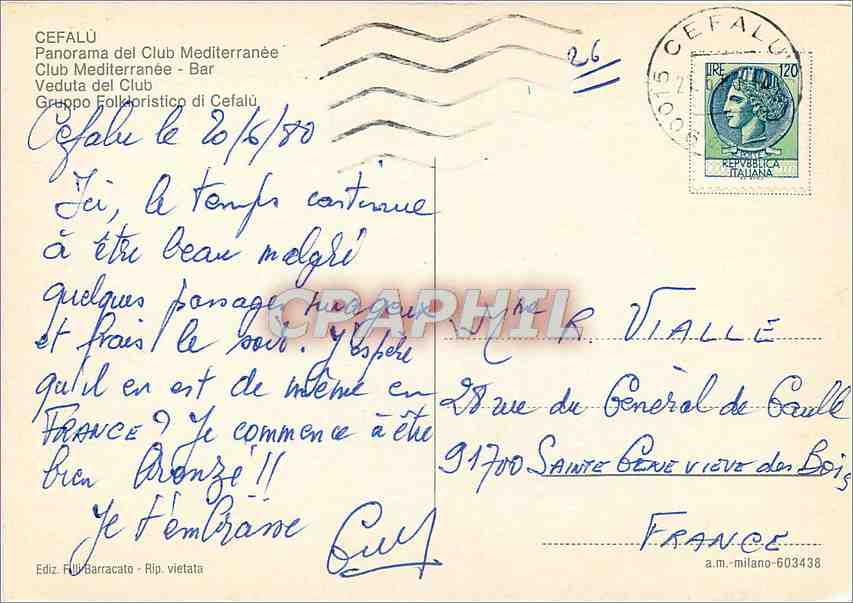 CEFALÙ
Panorama del Club Mediterranée
Club Mediterranée - Bar
Veduta del Club
Gruppo Folkloristico di Cefalù
Cefalu le 20/6/80
Ici, le temps continue
à être beau malgré
quelques passages nuageux
et frais le soir. J'espère
qu'il en est de même en
FRANCE? Je commence à être
bien bronzé!!
Je t'embrasse
Ediz. F.lli Barracato - Rip. vietata
26
CEFALÙ
90015
LIRE 120
REPVBBLICA
ITALIANA
CPAPHIL
Mme R. VIALLE
28 rue du Général de Gaulle
91700 SAINTE GENEVIEVE des Bois
FRANCE
a.m.-milano-603438